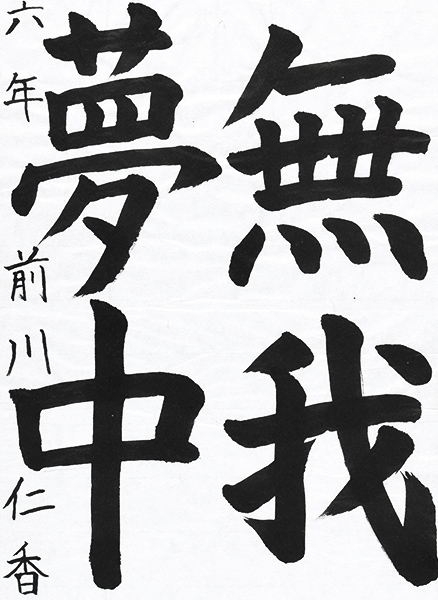 無我
夢中
六年 前川仁香